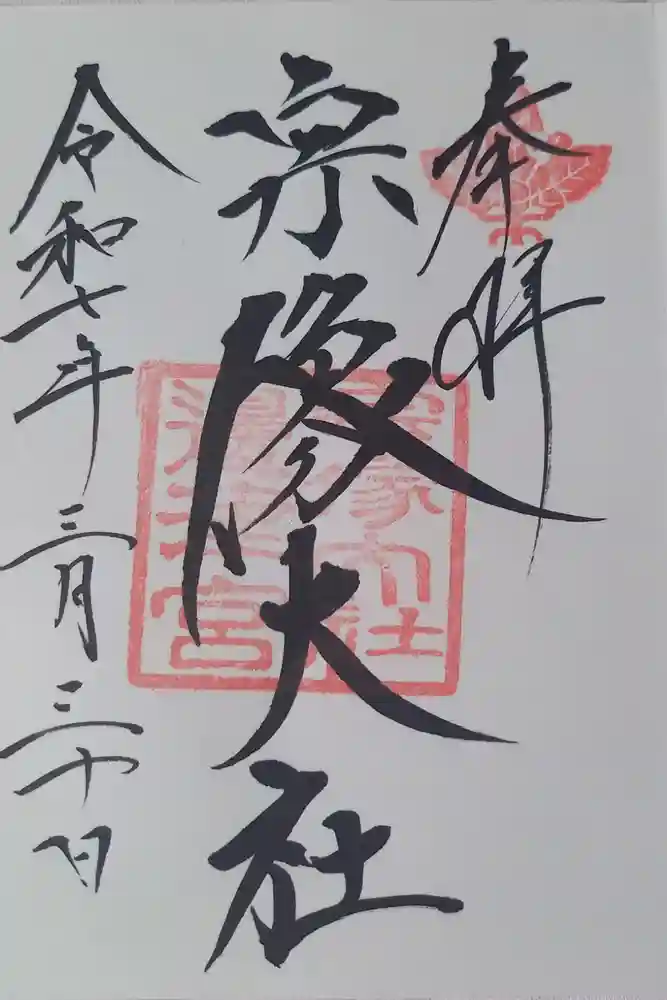 奉拝
宗像大社
宗像大社
邊津宮
令和七年三月三十日